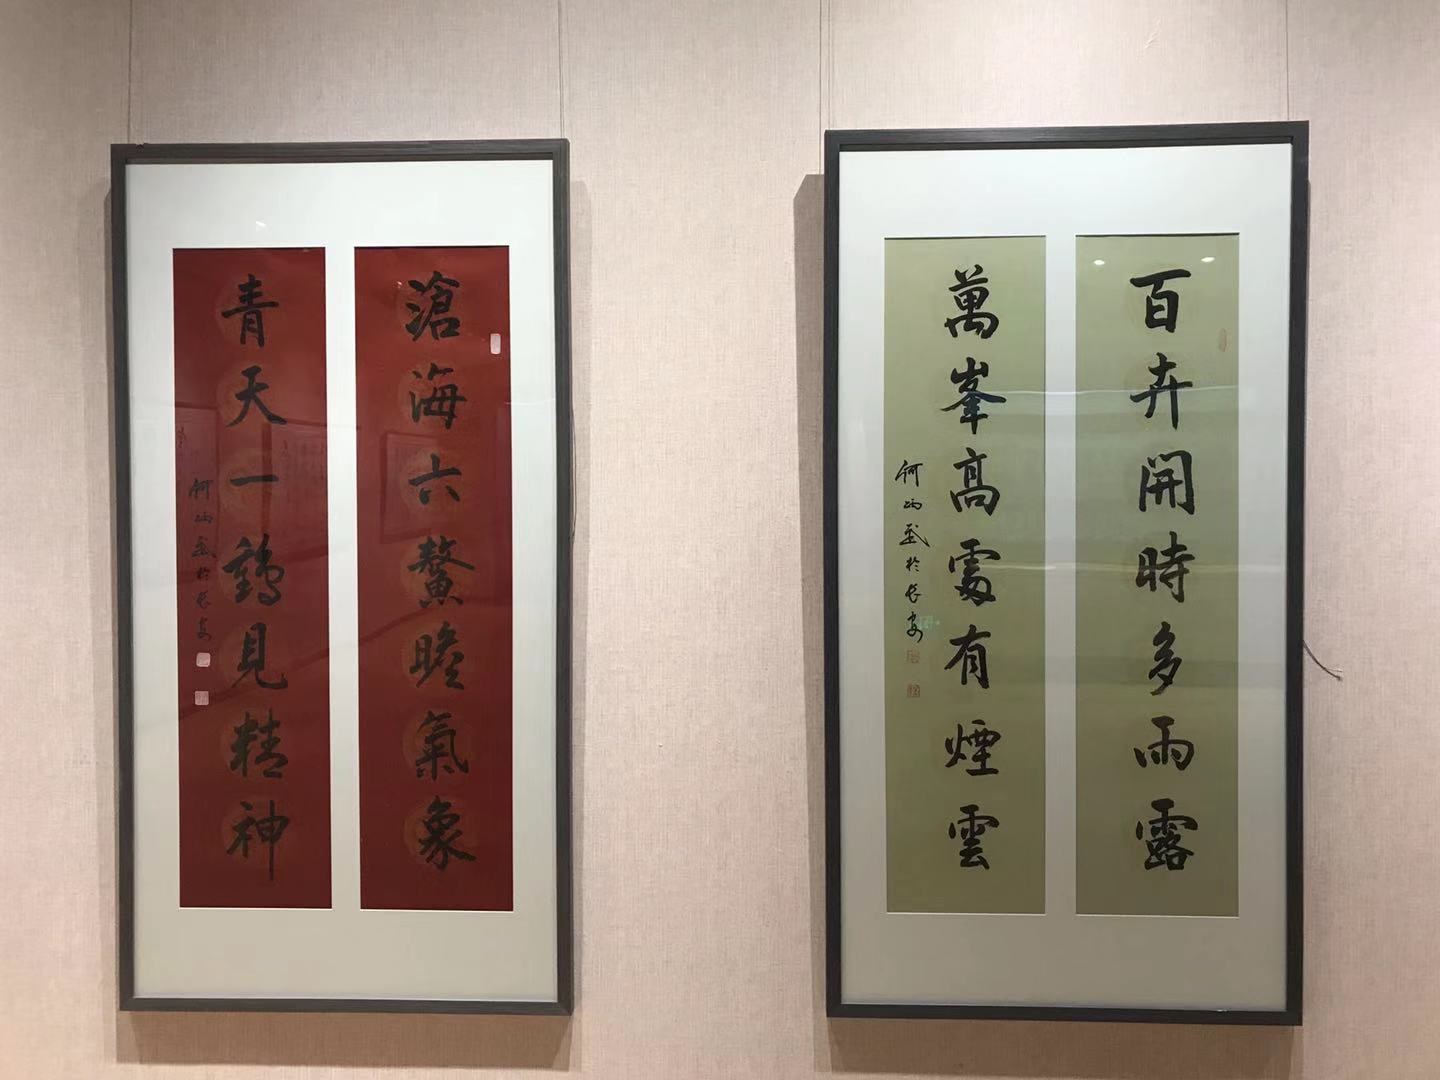 滄海六鰲瞻氣象
青天一鶴見精神
何炳武於長安
百卉開時多雨露
萬峯高處有煙雲
何炳武於長安